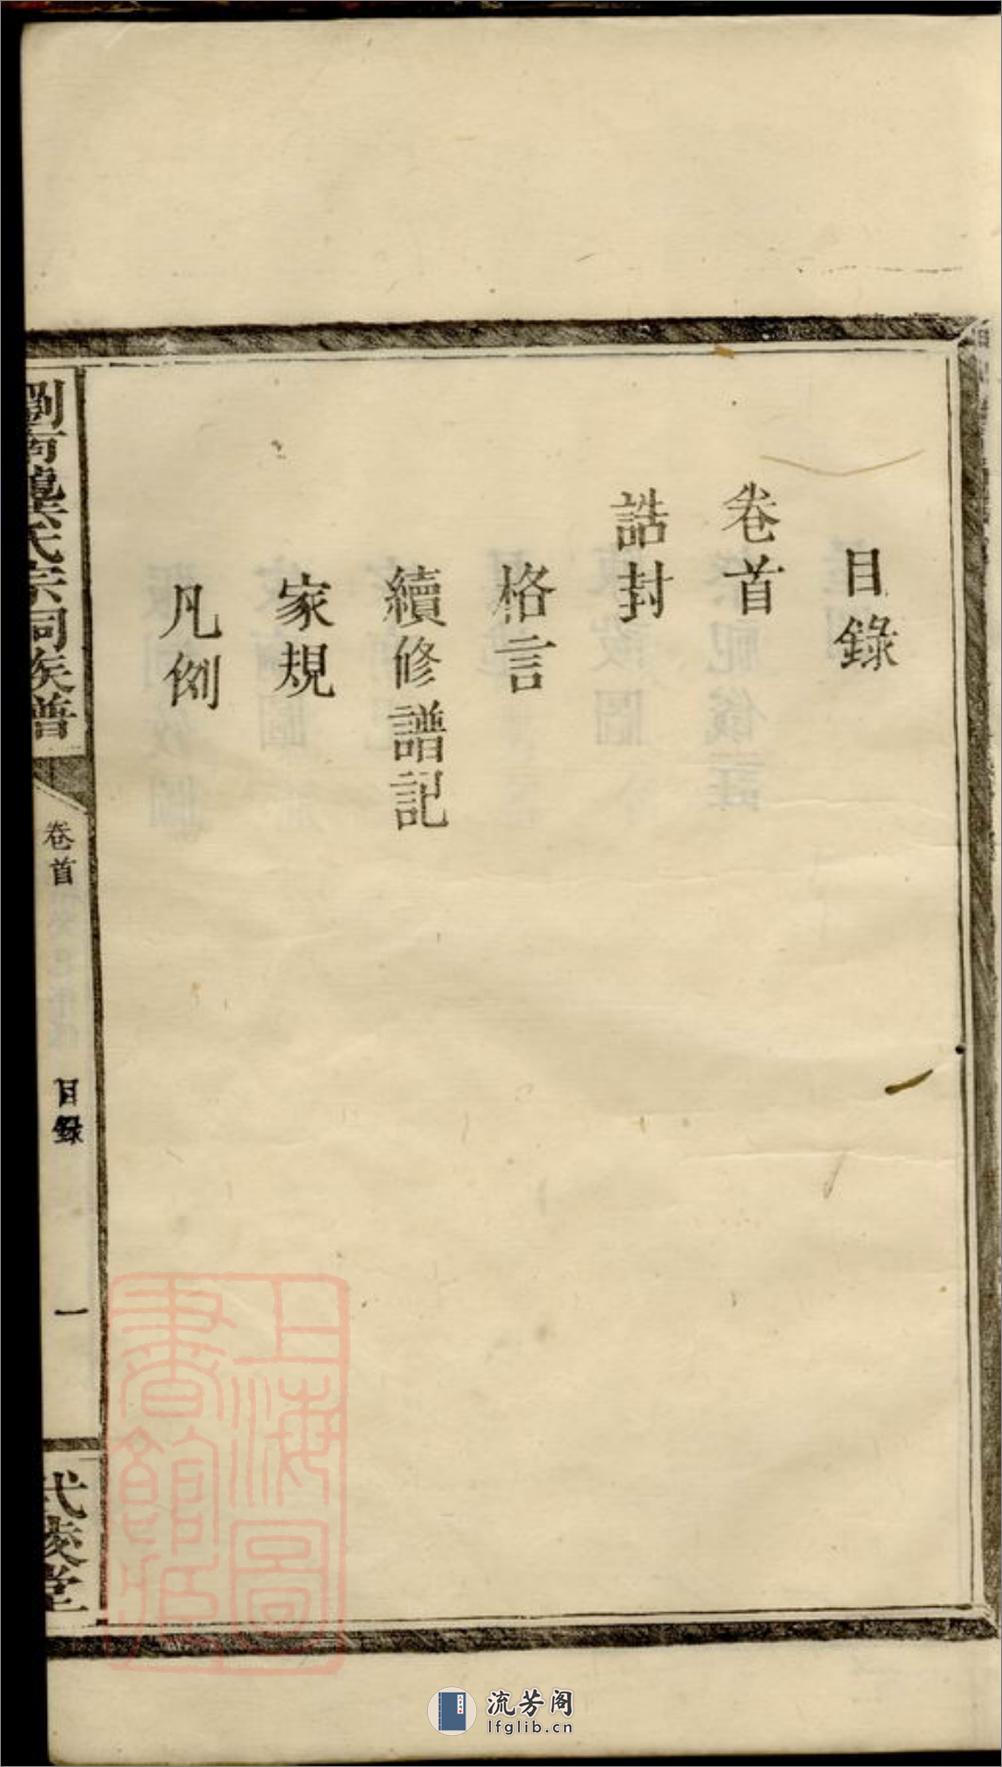 目錄
卷首
誥封
格言
續修譜記
家規
凡例
劉河龔氏宗祠族譜
卷首
目錄
一
武陵堂
上海圖
書館藏
流芳阁
lfglib.cn